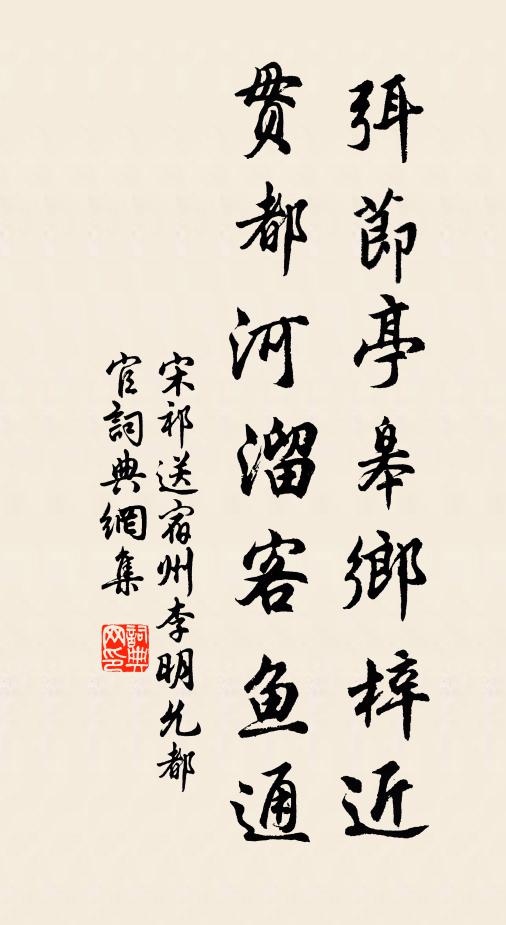 弭節亭皋鄉梓近
贯都河溜客鱼通
宋祁送宿州李明允都
官詞典網集
詞典
网印